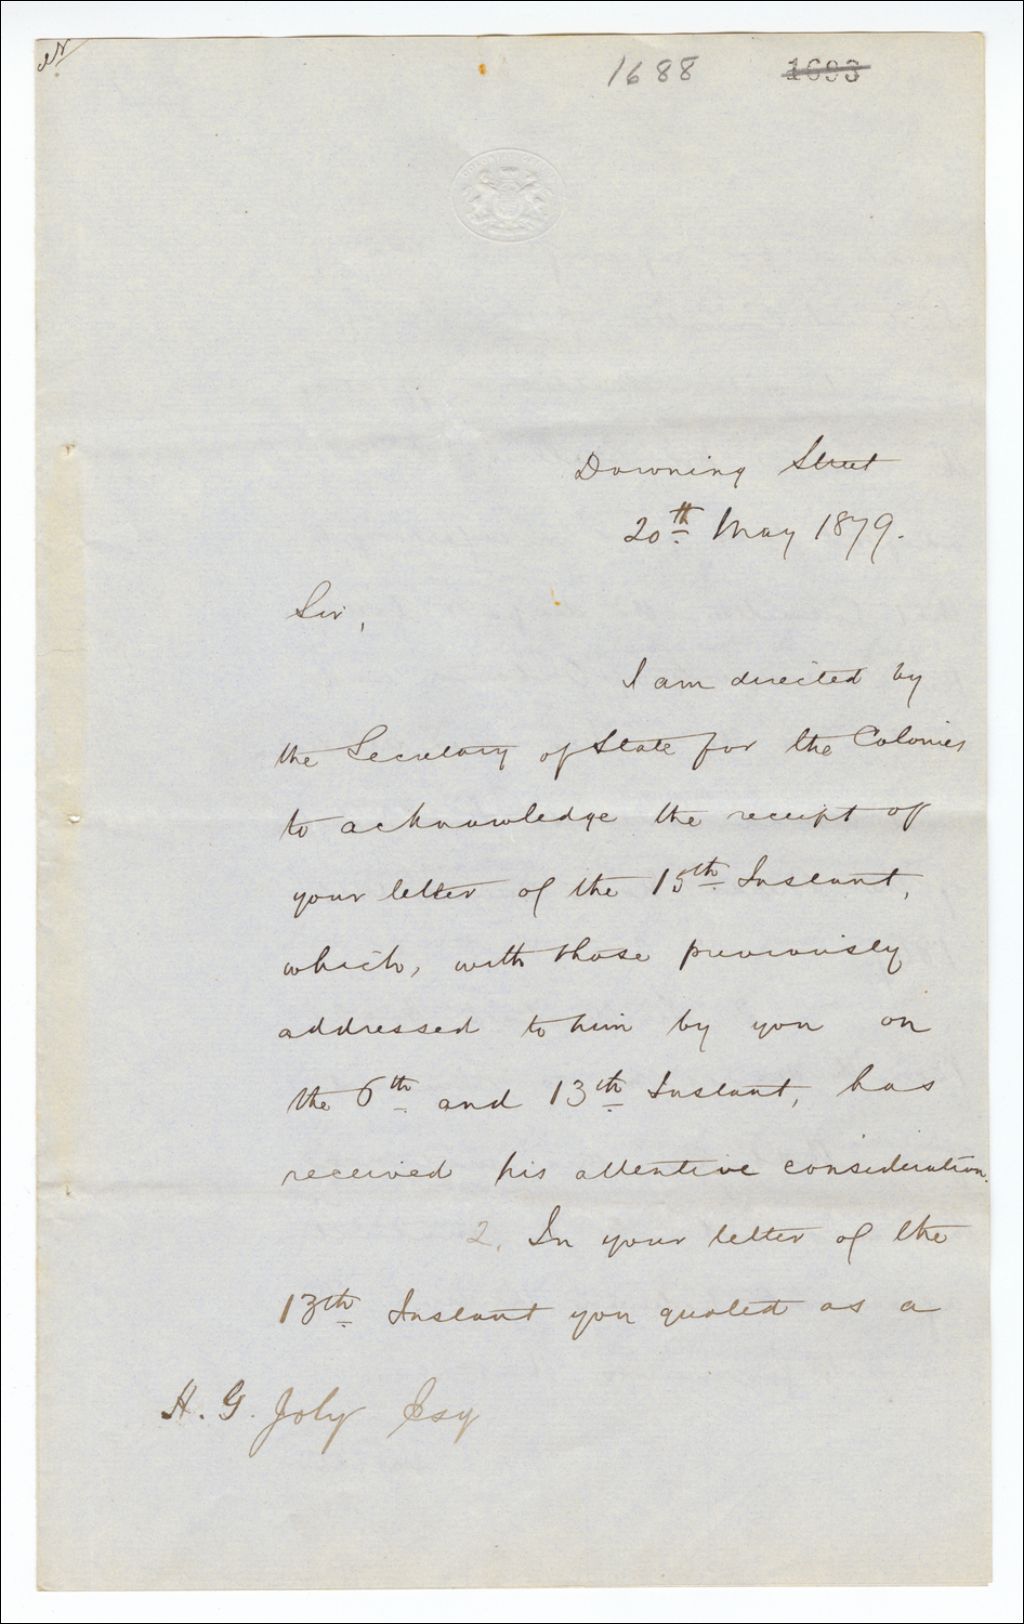 1688 1693
Downing Street
20th May 1879.
Sir,
I am directed by
the Secretary of State for the Colonies
to acknowledge the receipt of
your letter of the 15th Instant,
which, with those previously
addressed to him by you on
the 6th and 13th Instant, has
received his attentive consideration.
2. In your letter of the
13th Instant you quoted as a
H. G. Joly Esq